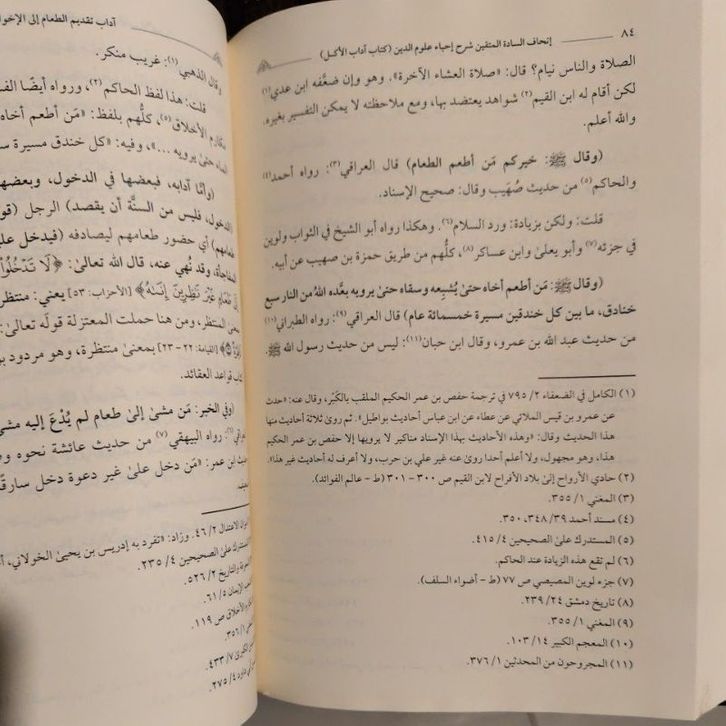 ٨٤ إتحاف السادة المتقين شرح إحياء علوم الدين (كتاب آداب الأكل)
الصلاة والناس نيام؟ قال: «صلاة العشاء الآخرة». وهو وإن ضعَّفه ابن عدي(١)
لكن أقام له ابن القيم(٢) شواهد يعتضد بها، ومع ملاحظته لا يمكن التفسير بغيره.
والله أعلم.
(وقال ﷺ: خيركم مَن أطعم الطعام) قال العراقي(٣): رواه أحمد(٤)
والحاكم(٥) من حديث صُهَيب وقال: صحيح الإسناد.
قلت: ولكن بزيادة: ورد السلام(٦). وهكذا رواه أبو الشيخ في الثواب ولوين
في جزئه(٧) وأبو يعلىٰ وابن عساكر(٨)، كلُّهم من طريق حمزة بن صهيب عن أبيه.
(وقال ﷺ: مَن أطعم أخاه حتىٰ يُشبِعه وسقاه حتىٰ يرويه بعَّده اللهُ من النار سبع
خنادق، ما بين كل خندقين مسيرة خمسمائة عام) قال العراقي(٩): رواه الطبراني(١٠)
من حديث عبد الله بن عمرو، وقال ابن حبان(١١): ليس من حديث رسول الله ﷺ.
(١) الكامل في الضعفاء ٢/ ٧٩٥ في ترجمة حفص بن عمر الحكيم الملقب بالكَبْر، وقال عنه: «حدث
عن عمرو بن قيس الملائي عن عطاء عن ابن عباس أحاديث بواطيل». ثم روىٰ ثلاثة أحاديث منها
هذا الحديث وقال: «وهذه الأحاديث بهذا الإسناد مناكير لا يرويها إلا حفص بن عمر الحكيم
هذا، وهو مجهول، ولا أعلم أحدا روىٰ عنه غير علي بن حرب، ولا أعرف له أحاديث غير هذا».
(٢) حادي الأرواح إلىٰ بلاد الأفراح لابن القيم ص ٣٠٠ - ٣٠١ (ط - عالم الفوائد).
(٣) المغني ١/ ٣٥٥.
(٤) مسند أحمد ٣٩/ ٣٤٨، ٣٥٠.
(٥) المستدرك علىٰ الصحيحين ٤/ ٤١٥.
(٦) لم تقع هذه الزيادة عند الحاكم.
(٧) جزء لوين المصيصي ص ٧٧ (ط - أضواء السلف).
(٨) تاريخ دمشق ٢٤/ ٢٣٩.
(٩) المغني ١/ ٣٥٥.
(١٠) المعجم الكبير ١٤/ ١٠٣.
(١١) المجروحون من المحدثين ١/ ٣٧٦.
آداب تقديم الطعام إلى الإخوا
وقال الذهبي(١): غريب منكر.
قلت: هذا لفظ الحاكم(٢)، ورواه أيضًا
مكارم الأخلاق(٥)، كلُّهم بلفظ: «مَن أطعم أخاه
حتىٰ يرويه ...»، وفيه: «كل خندق مسيرة س
(وأمَّا آدابه، فبعضها في الدخول، وبعضه
الدخول، فليس من السنَّة أن يقصد) الرجل (قو
طعامهم) أي حضور طعامهم ليصادفه (فيدخل علي
المفاجأة، وقد نُهي عنه، قال الله تعالىٰ: ﴿لَا تَدْخُلُواْ
إِلَىٰ طَعَامٍ غَيْرَ نَٰظِرِينَ إِنَىٰهُ﴾ [الأحزاب: ٥٣] يعني: منتظر
المنتظر، ومن هنا حملت المعتزلة قولَه تعالىٰ:
[القيامة: ٢٢ - ٢٣] بمعنىٰ منتظرة، وهو مردود
كتاب قواعد العقائد.
(وفي الخبر: مَن مشىٰ إلىٰ طعام لم يُدْعَ إليه مشى
رواه البيهقي(٧) من حديث عائشة نحوه
ابن عمر: «مَن دخل علىٰ غير دعوة دخل سارقًا
الاعتدال ٢/ ٤٦. وزاد: «تفرد به إدريس بن يحيىٰ الخولاني،
المستدرك علىٰ الصحيحين ٤/ ٢٣٥.
والتاريخ ٢/ ٥٢٦.
الإيمان ٥/ ٦١.
الأخلاق ص ١١٩.
١/ ٣٥٦.
٧/ ٤٣٣.
٤/ ٢٧٥.